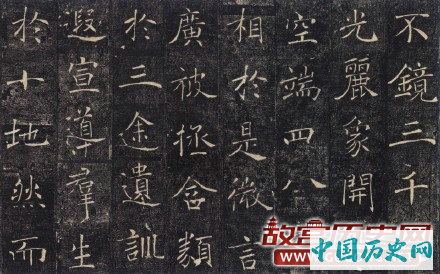 不鏡三千
光麗象開
空端四八
相於是微言
廣被拯含類
於三途遺訓
遐宣導羣生
於十地然而
故宫历史网
中国历史网